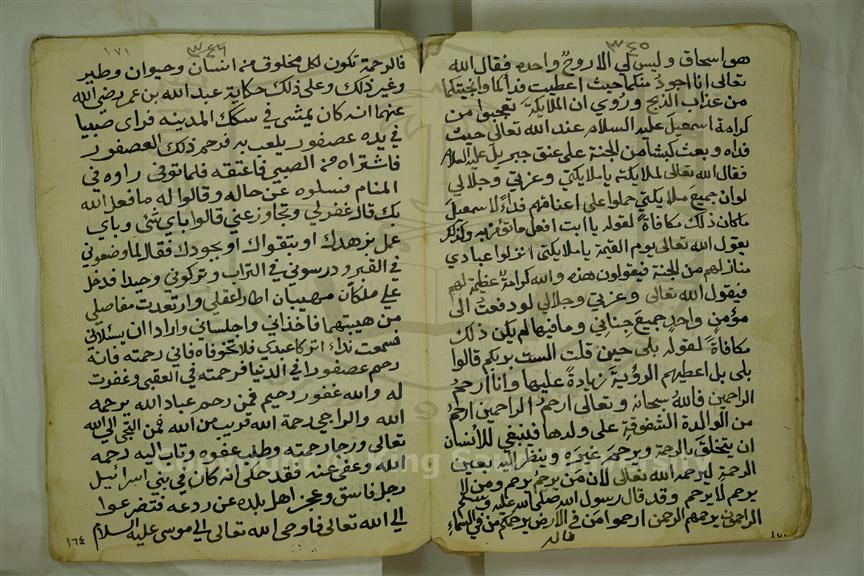 ٣٤٥
هو اسحاق وليس لي الا روحٌ واحده فقال الله
تعالى انا اجودُ منكما حيث اعطيت فدا لكما وانجيتكما
من عذاب الذبح وروي ان الملايكة تعجبوا من
كرامة اسمعيل عليه السلام عند الله تعالى حيث
فداه وبعث كبشا من الجنة على عنق جبريل عليه السلام
فقال الله تعالى لملايكته يا ملايكتي وعزتي وجلالي
لو ان جميع ملايكتي حملوا على اعناقهم فداءً لاسمعيل
ما كان ذلك مكافاةً لقوله يا ابت افعل ما تؤمر به وكذلك
يقول الله تعالى يوم القيمة يا ملايكتي انزلوا عبادي
منازلهم من الجنة فيقولون هذه والله كرامة عظيمة لهم
فيقول الله تعالى وعزتي وجلالي لو دفعتُ الى
مؤمن واحدٍ جميع جناني وما فيها لم يكن ذلك
مكافاةً لقوله بلى حين قلت الست بربكم قالوا
بلى بل اعطيهم الرؤية زيادةً عليها وانا ارحمُ
الراحمين فالله سبحانه وتعالى ارحمُ الراحمين ارحم
من الوالدة الشفوقة على ولدها فينبغي للأنسان
ان يتخلق بالرحمة ويرحم غيره وينظر اليه بعين
الرحمة ليرحمه الله تعالى لان من يرحم يرحم ومن لا
يرحم لا يرحم وقد قال رسول الله صلى الله عليه وسلم
الراحمون يرحمهم الرحمن ارحموا من في الارض يرحمكم من في السماء
١٧٠
٣٤٦
١٧١
فالرحمة تكون لكل مخلوق من انسان وحيوان وطير
وغير ذلك وعلى ذلك حكاية عبد الله بن عمر رضي الله
عنهما انه كان يمشي في سكك المدينه فراى صبيا
في يده عصفور يلعب به فرحم ذلك العصفور
فاشتراه من الصبي فاعتقه فلما توفي راوه في
المنام فسلوه عن حاله وقالوا له ما فعل الله
بك قال غفر لي وتجاوز عني قالوا باي شئ وباي
عمل بزهدك او بتقواك او بجودك فقال لما وضعوني
في القبر ودرسوني في التراب وتركوني وحيدا فدخل
علي ملكان مهيبان اطار اعقلي وارتعدت مفاصلي
من هيبتهما فاخذاني واجلساني وارادا ان يسئلاني
فسمعت نداء اتركا عبدي فلا تخوفاه فاني رحمته فانه
رحم عصفورا في الدنيا فرحمته في العقبى وغفرت
له والله غفور رحيم فمن رحم عباد الله يرحمه
الله والراجي رحمة الله قريب من الله فمن التجى الى الله
تعالى ورجا رحمته وطلب عفوه وتاب اليه رحمه
الله وعفى عنه فقد حكى انه كان في بني اسرائيل
رجل فاسق وعجز اهل بلده عن ردعه فتضرعوا
الى الله تعالى فاوحى الله تعالى الى موسى عليه السلام
١٦٤